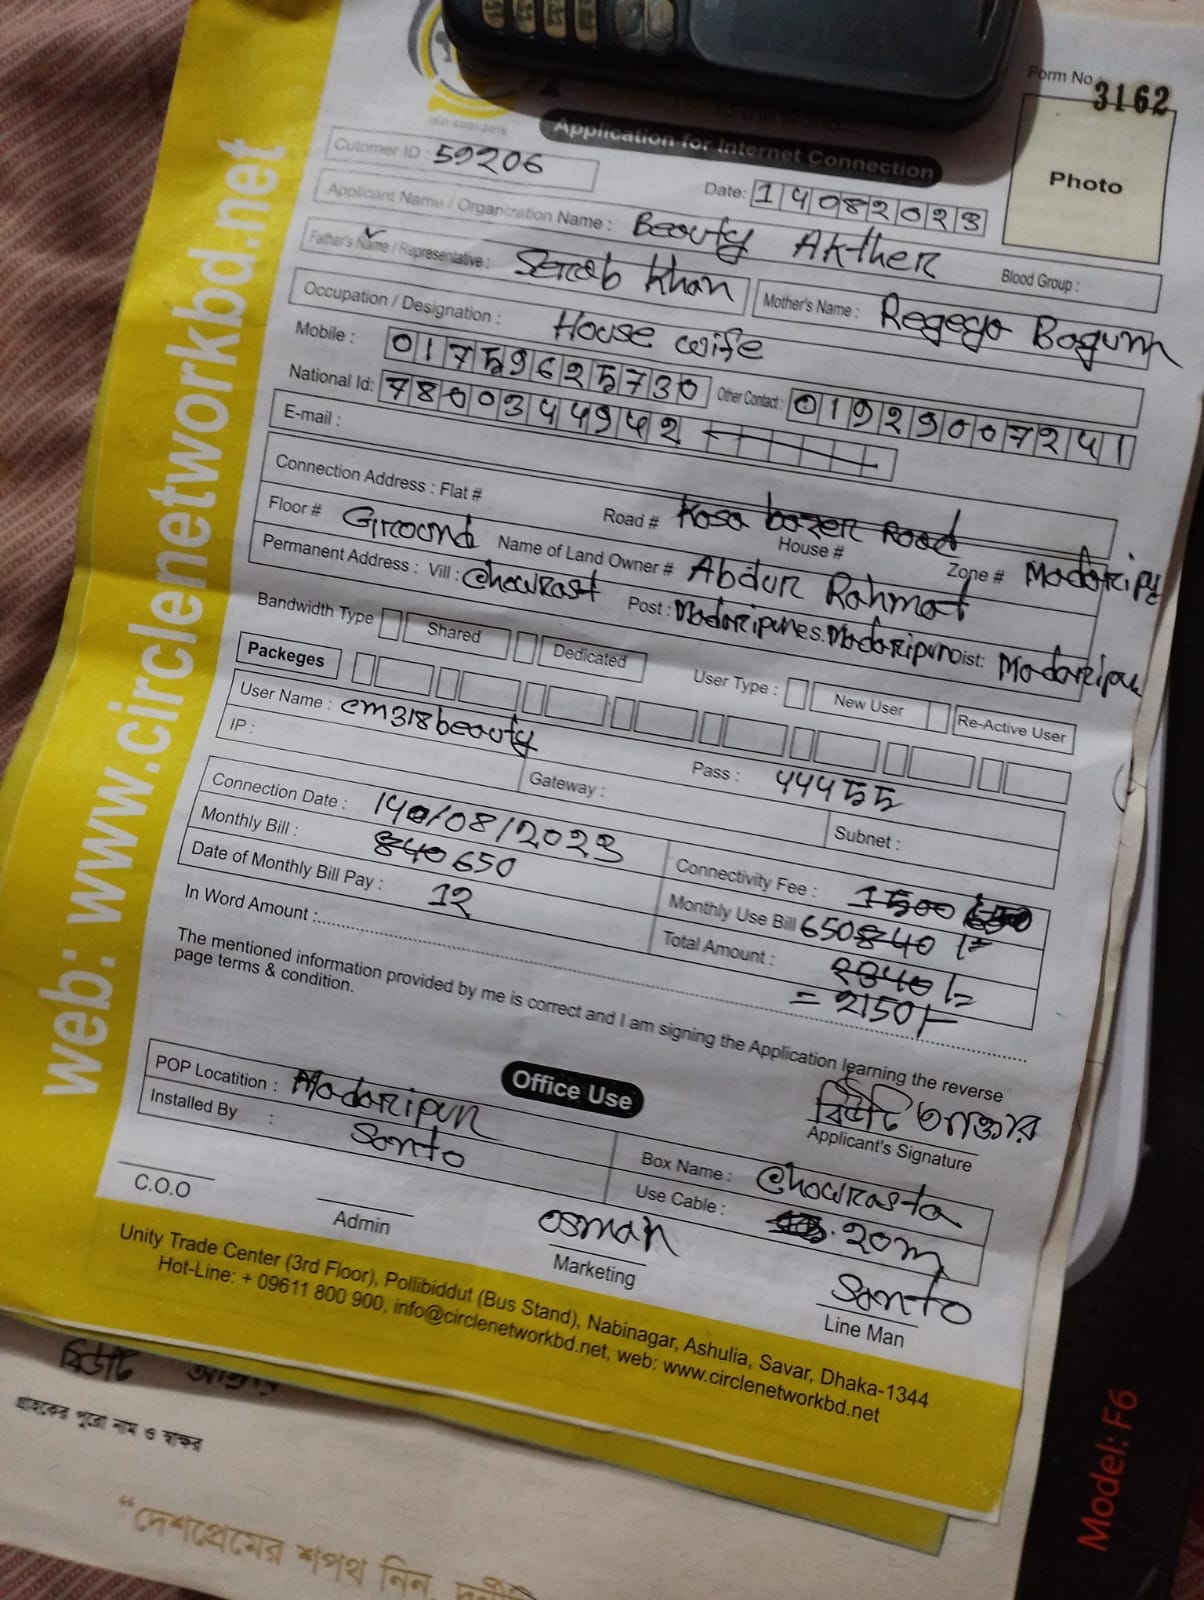 Form No : 3162
ISO 9001:2015
to the world
Application for Internet Connection
Photo
Cutomer ID : 59206
Date: 14082023
Applicant Name / Organization Name : Beauty AKther
Blood Group :
Father's Name / Representative : Serab Khan
Mother's Name : Regega Bagum
Occupation / Designation : House wife
Mobile : 01759625730
Other Contact : 01929007241
National Id: 7800344942
E-mail :
Connection Address : Flat #
Road # Kosa bazer Road
House #
Zone # Madaripu
Floor # Ground
Name of Land Owner # Abdur Rahmat
Permanent Address : Vill : Chowrast
Post : Madaripur
P.S. Madaripur
Dist: Madaripur
Bandwidth Type Shared Dedicated
User Type : New User Re-Active User
Packeges
User Name : cm318beauty
Pass : 44455
IP :
Gateway :
Subnet :
Connection Date : 14/08/2023
Connectivity Fee : 1500
Monthly Bill : 840 650
Monthly Use Bill 650 840 /=
Date of Monthly Bill Pay : 12
Total Amount : 2340 /=
= 2150/-
In Word Amount :
The mentioned information provided by me is correct and I am signing the Application learning the reverse
page terms & condition.
বিউটি আক্তার
Applicant's Signature
Office Use
POP Locatition : Madaripur
Box Name : Chowrasta
Installed By : Santo
Use Cable : 20m
C.O.O
Admin
osman
Marketing
Santo
Line Man
Unity Trade Center (3rd Floor), Pollibiddut (Bus Stand), Nabinagar, Ashulia, Savar, Dhaka-1344
Hot-Line: + 09611 800 900, info@circlenetworkbd.net, web: www.circlenetworkbd.net
web: www.circlenetworkbd.net
বিউটি আক্তার
গ্রাহকের পুরো নাম ও স্বাক্ষর
“দেশপ্রেমের শপথ নিন,
Model: F6